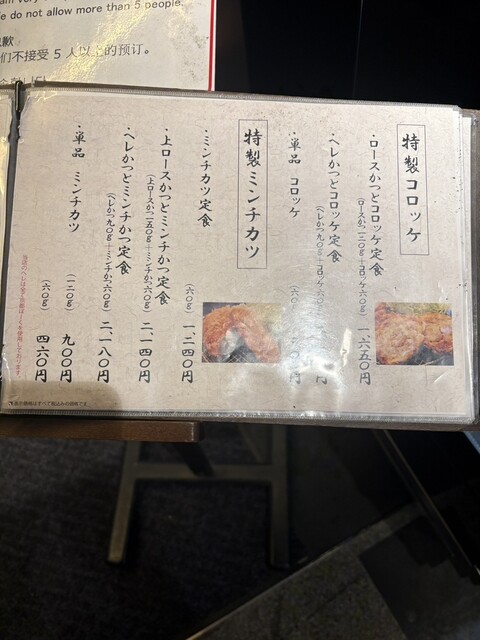 We do not allow more than 5 people.
们不接受 5 人以上的预订。
特製コロッケ
・ロースかつとコロッケ定食
(ロースかつ一三〇g+コロッケ六〇g) 一、六五〇円
・ヘレかつとコロッケ定食
(ヘレかつ九〇g+コロッケ六〇g)
円
・単品 コロッケ
円
特製ミンチカツ
・ミンチカツ定食
(六〇g) 一、二四〇円
・上ロースかつとミンチかつ定食
(上ロースかつ一五〇g+ミンチかつ六〇g) 二、一四〇円
・ヘレかつとミンチかつ定食
(ヘレかつ九〇g+ミンチかつ六〇g) 二、一八〇円
・単品 ミンチカツ
(一二〇g) 九〇〇円
(六〇g) 四六〇円